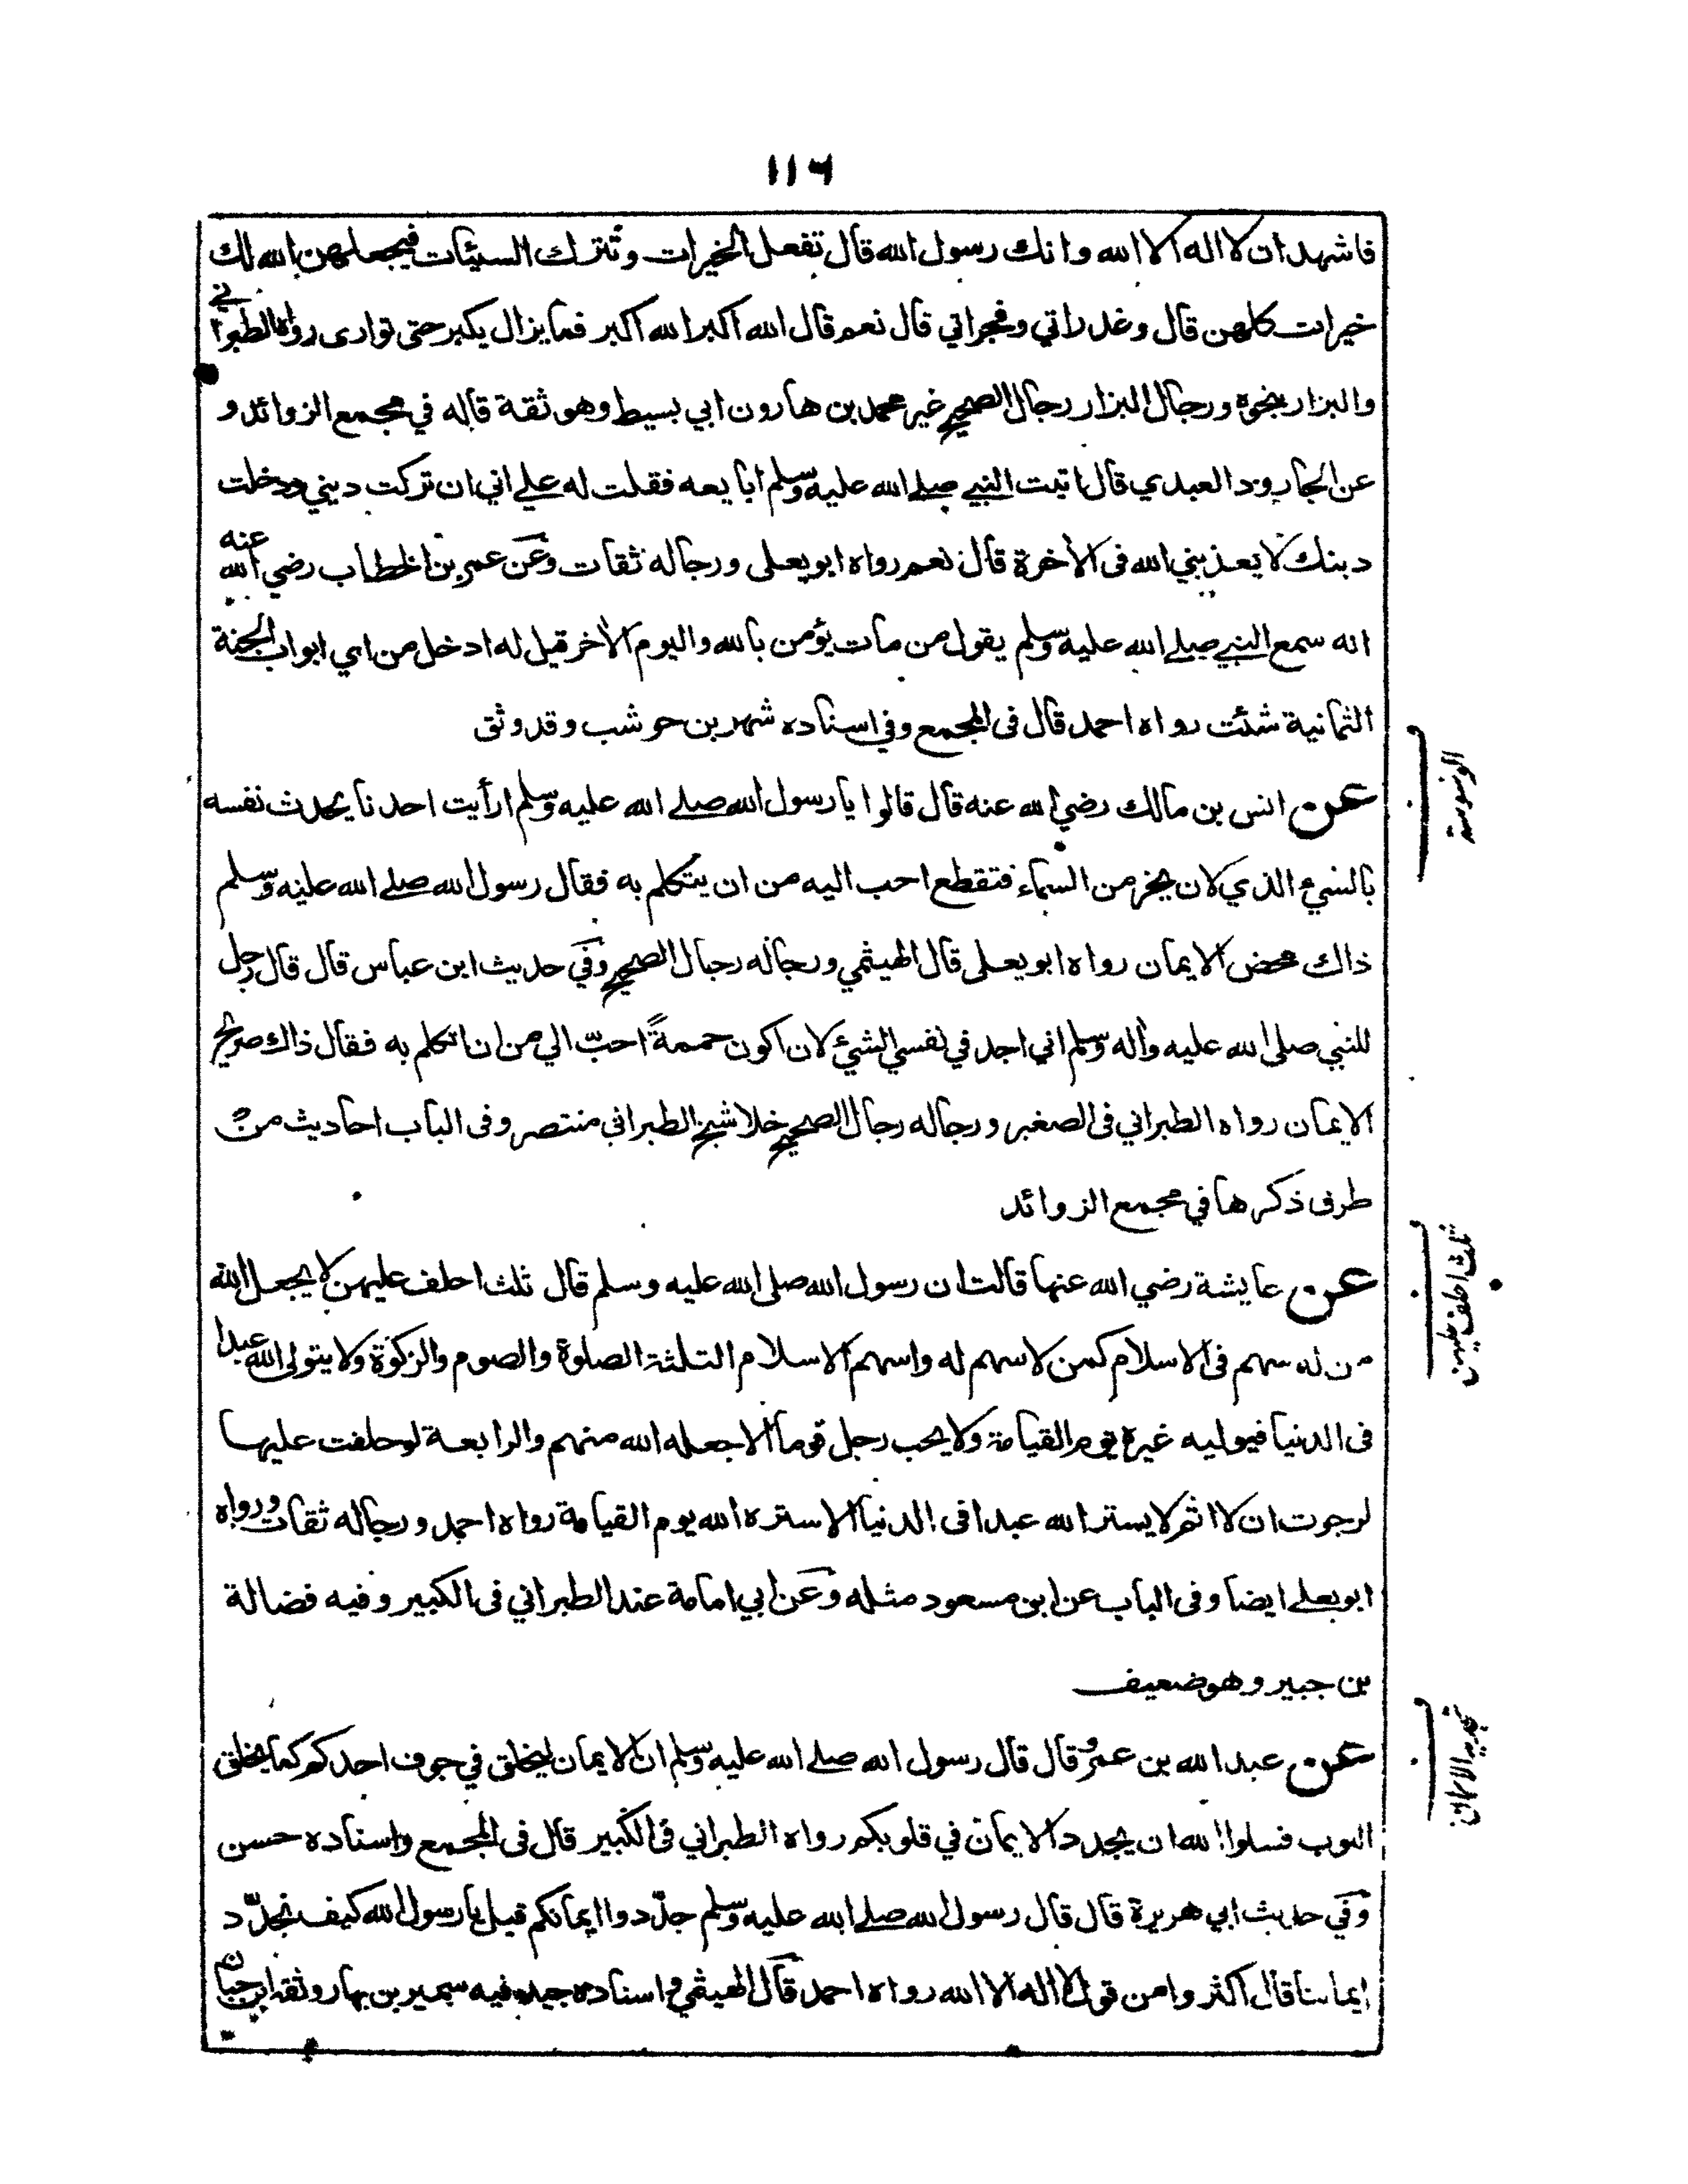 ١١٦
فاشهد ان لا اله الا الله وانك رسول الله قال تفعل الخيرات وتترك السيئات فيجعلهن الله لك
خيرات كلهن قال وغدراتي وفجراتي قال نعم قال الله اكبر الله اكبر فما يزال يكبر حتى توارى رواه الطبراني
والبزار بنحوه ورجال البزار رجال الصحيح غير محمد بن هارون ابي بسيط وهو ثقة قاله في مجمع الزوائد و
عن الجارود العبدي قال اتيت النبي صلى الله عليه وسلم ابايعه فقلت له على اني ان تركت ديني ودخلت
دينك لا يعذبني الله فى الأخرة قال نعم رواه ابو يعلى ورجاله ثقات وعن عمر بن الخطاب رضي الله عنه
انه سمع النبي صلى الله عليه وسلم يقول من مات يؤمن بالله واليوم الأخر قيل له ادخل من اي ابواب الجنة
الثمانية شئت رواه احمد قال فى المجمع وفي اسناده شهر بن حوشب وقد وثق
الوسوسة
عن انس بن مالك رضي الله عنه قال قالوا يا رسول الله صلى الله عليه وسلم ارأيت احدنا يحدث نفسه
بالشيء الذي لان يخر من السماء فتقطع احب اليه من ان يتكلم به فقال رسول الله صلى الله عليه وسلم
ذاك محض الايمان رواه ابو يعلى قال الهيثمي ورجاله رجال الصحيح وفي حديث ابن عباس قال قال رجل
للنبي صلى الله عليه وأله وسلم اني اجد في نفسي الشئ لان اكون حممةً احبّ الي من ان اتكلم به فقال ذاك صريح
الايمان رواه الطبراني فى الصغير ورجاله رجال الصحيح خلا شيخ الطبراني منتصر وفى الباب احاديث من
طرق ذكرها في مجمع الزوائد
ثلث احلف عليهن
عن عايشة رضي الله عنها قالت ان رسول الله صلى الله عليه وسلم قال ثلث احلف عليهن لا يجعل الله
من له سهم فى الاسلام كمن لا سهم له واسهم الاسلام الثلثة الصلوة والصوم والزكوة ولا يتولى الله عبدا
فى الدنيا فيوليه غيره يوم القيامة ولا يحب رجل قوما الا جعله الله منهم والرابعة لو حلفت عليها
لرجوت ان لا اثم لا يستر الله عبدا فى الدنيا الا ستره الله يوم القيامة رواه احمد ورجاله ثقات ورواه
ابو يعلى ايضا وفى الباب عن ابن مسعود مثله وعن ابي امامة عند الطبراني فى الكبير وفيه فضالة
بن جبير وهو ضعيف
تجديد الايمان
عن عبد الله بن عمرو قال قال رسول الله صلى الله عليه وسلم ان الايمان ليخلق في جوف احدكم كما يخلق
الثوب فسلوا الله ان يجدد الايمان في قلوبكم رواه الطبراني فى الكبير قال فى المجمع واسناده حسن
وفي حديث ابي هريرة قال قال رسول الله صلى الله عليه وسلم جدّدوا ايمانكم قيل يا رسول الله كيف نجدّد
ايماننا قال اكثروا من قول لا اله الا الله رواه احمد قال الهيثمي واسناده جيد وفيه سمير بن نهار وثقه ابن حبان